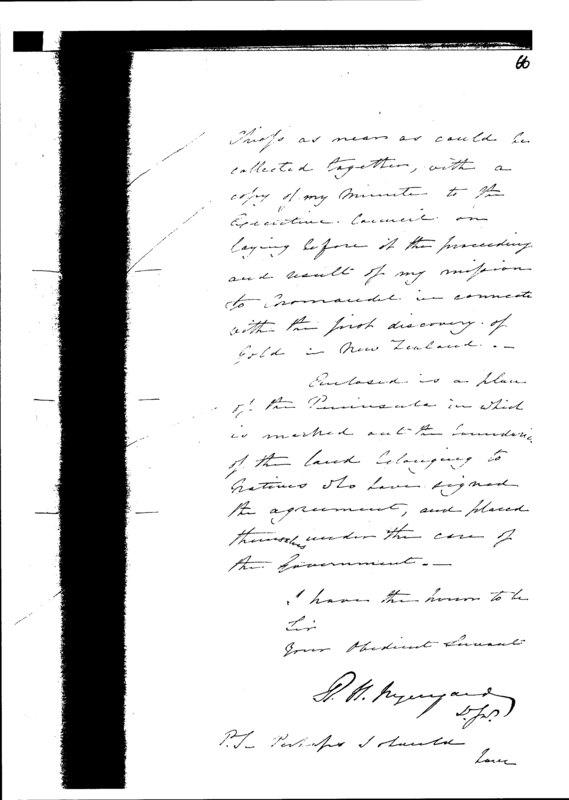 66
Chiefs as near as could be
collected together, with a
copy of my Minute to the
Executive Council on
laying before it the proceeding
and result of my mission
to Coromandel in connecti
with the first discovery of
Gold in New Zealand. —
Enclosed is a plan
of the Peninsula in which
is marked out the boundaries
of the land belonging to
Natives who have signed
the agreement, and placed
themselves under the care of
the Government. —
I have the honor to be
Sir
Your Obedient Servant
R. H. Wynyard
P.S. Perhaps I should
have